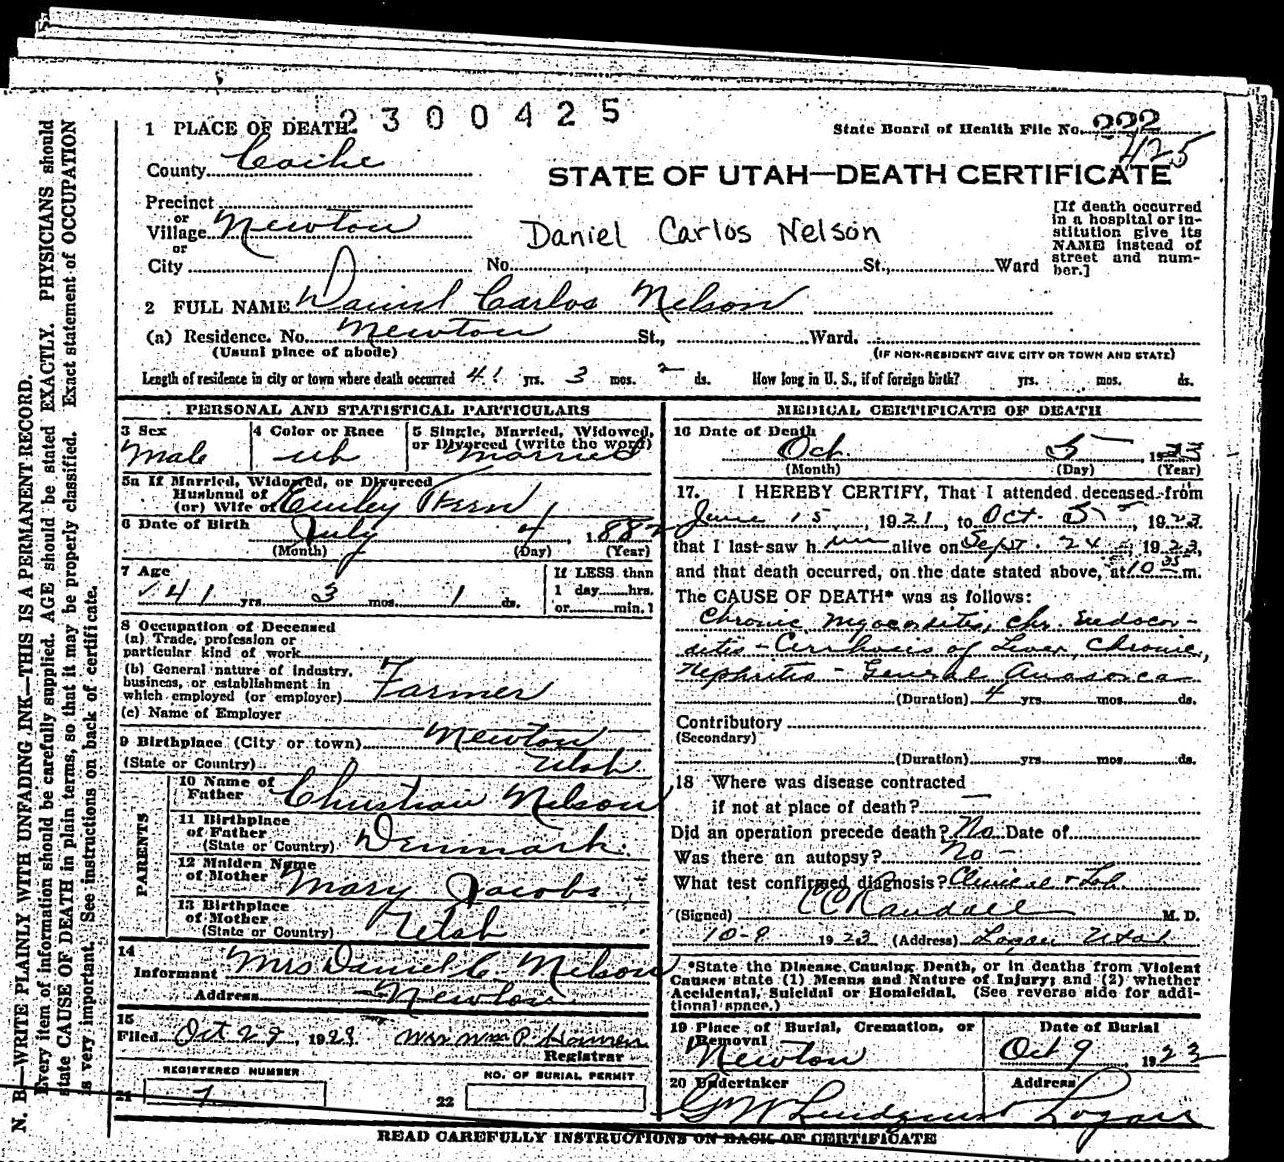 2300425
1 PLACE OF DEATH
State Board of Health File No. 222
425
County Cache
STATE OF UTAH—DEATH CERTIFICATE
Precinct
or
Village Newton
or
City No. St., Ward
Daniel Carlos Nelson
[If death occurred
in a hospital or in-
stitution give its
NAME instead of
street and num-
ber.]
2 FULL NAME Daniel Carlos Nelson
(a) Residence. No. Newton St., Ward.
(Usual place of abode) (IF NON-RESIDENT GIVE CITY OR TOWN AND STATE)
Length of residence in city or town where death occurred 41 yrs. 3 mos. 2 ds. How long in U. S., if of foreign birth? yrs. mos. ds.
PERSONAL AND STATISTICAL PARTICULARS
3 Sex 4 Color or Race 5 Single, Married, Widowed,
or Divorced (write the word)
Male Married
5a If Married, Widowed, or Divorced
Husband of
(or) Wife of
6 Date of Birth
July 4, 1882
(Month) (Day) (Year)
7 Age If LESS than
1 day hrs.
41 yrs. 3 mos. 1 ds. or min.?
8 Occupation of Deceased
(a) Trade, profession or
particular kind of work
(b) General nature of industry,
business, or establishment in
which employed (or employer) Farmer
(c) Name of Employer
9 Birthplace (City or town) Newton
(State or Country) Utah
PARENTS
10 Name of
Father Christian Nelson
11 Birthplace
of Father
(State or Country) Denmark
12 Maiden Name
of Mother Mary Jacobs
13 Birthplace
of Mother
(State or Country) Utah
14
Informant Mrs Daniel C. Nelson
Address Newton
15
Filed Oct 29, 1923 Mrs Wm P.
Registrar
REGISTERED NUMBER NO. OF BURIAL PERMIT
21 7 22
MEDICAL CERTIFICATE OF DEATH
16 Date of Death
Oct 5 1923
(Month) (Day) (Year)
17. I HEREBY CERTIFY, That I attended deceased from
June 15, 1921, to Oct. 5, 1923
that I last saw him alive on Sept. 24, 1923,
and that death occurred, on the date stated above, at 10 35 m.
The CAUSE OF DEATH* was as follows:
Chronic Myocarditis, Chr. Endocar-
ditis - Cirrhosis of Liver, Chronic,
Nephritis - General Anasarca
(Duration) 4 yrs. mos. ds.
Contributory
(Secondary)
(Duration) yrs. mos. ds.
18 Where was disease contracted
if not at place of death?
Did an operation precede death? No Date of
Was there an autopsy? No -
What test confirmed diagnosis? Clinical + Lab.
(Signed) CC Randall M. D.
10-9 1923 (Address) Logan Utah
*State the Disease Causing Death, or in deaths from Violent
Causes state (1) Means and Nature of Injury; and (2) whether
Accidental, Suicidal or Homicidal. (See reverse side for addi-
tional space.)
19 Place of Burial, Cremation, or Removal Date of Burial
Newton Oct 9 1923
20 Undertaker Address
G W Lindquist Logan
READ CAREFULLY INSTRUCTIONS ON BACK OF CERTIFICATE
N. B.—WRITE PLAINLY WITH UNFADING INK—THIS IS A PERMANENT RECORD.
Every item of information should be carefully supplied. AGE should be stated EXACTLY. PHYSICIANS should
state CAUSE OF DEATH in plain terms, so that it may be properly classified. Exact statement of OCCUPATION
is very important. See instructions on back of certificate.